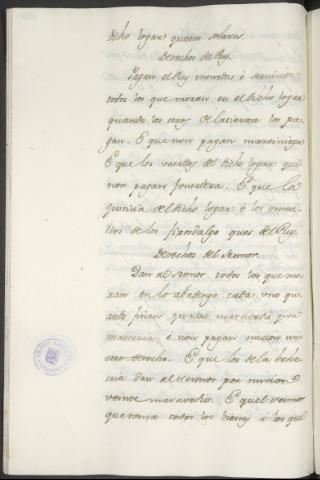 dicho logar quatro solares.
Derechos del Rey.
Pagan el Rey monedas é servicios
todos los que moran en el dicho logar
quando los otros de la tierra los pa-
gan. E que non pagan martiniega
E que los vasallos del dicho logar que
non pagan fonsadera. E que la
justicia del dicho logar é los omeci-
llos de los fijosdalgo que es del Rey.
Derechos del Sennor.
Dan al sennor todos los que mo-
ran en lo abadengo cada uno qu
anto quatro maravedis por
martiniega, é non pagan nucion nin
otro derecho. E que los de la behe-
tria dan al sennor por nucion
veinte maravedis. E que el sennor
que toma todos los bienes á los que